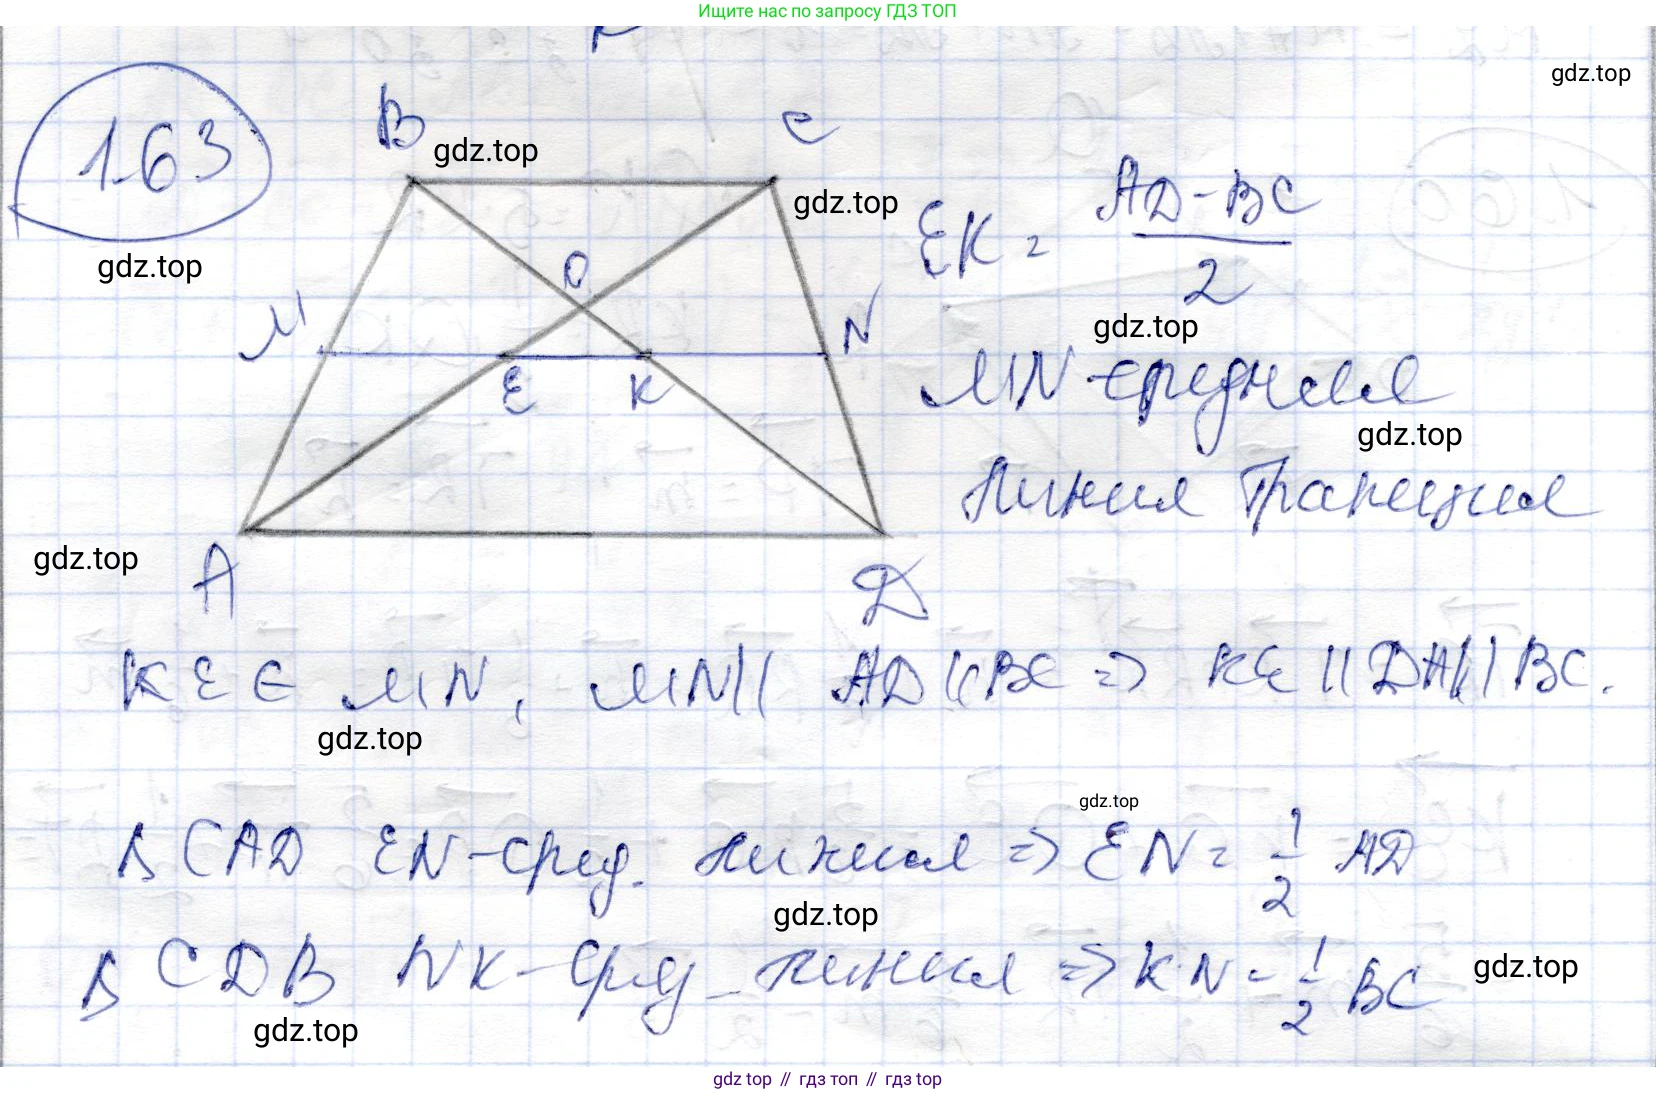 Ищите нас по запросу ГДЗ ТОП
gdz.top
163
B
C
gdz.top
gdz.top
EK = AD - BC / 2
gdz.top
O
M
N
gdz.top
E
K
MN - средняя
gdz.top
линия трапеции
gdz.top
A
D
KE ∈ MN, MN || AD || BC => KE || DA || BC.
gdz.top
gdz.top
Δ CAD EN - сред. линия => EN = 1/2 AD
gdz.top
Δ CDB NK - сред. линия => KN = 1/2 BC
gdz.top
gdz.top
gdz top // гдз топ // gdz top